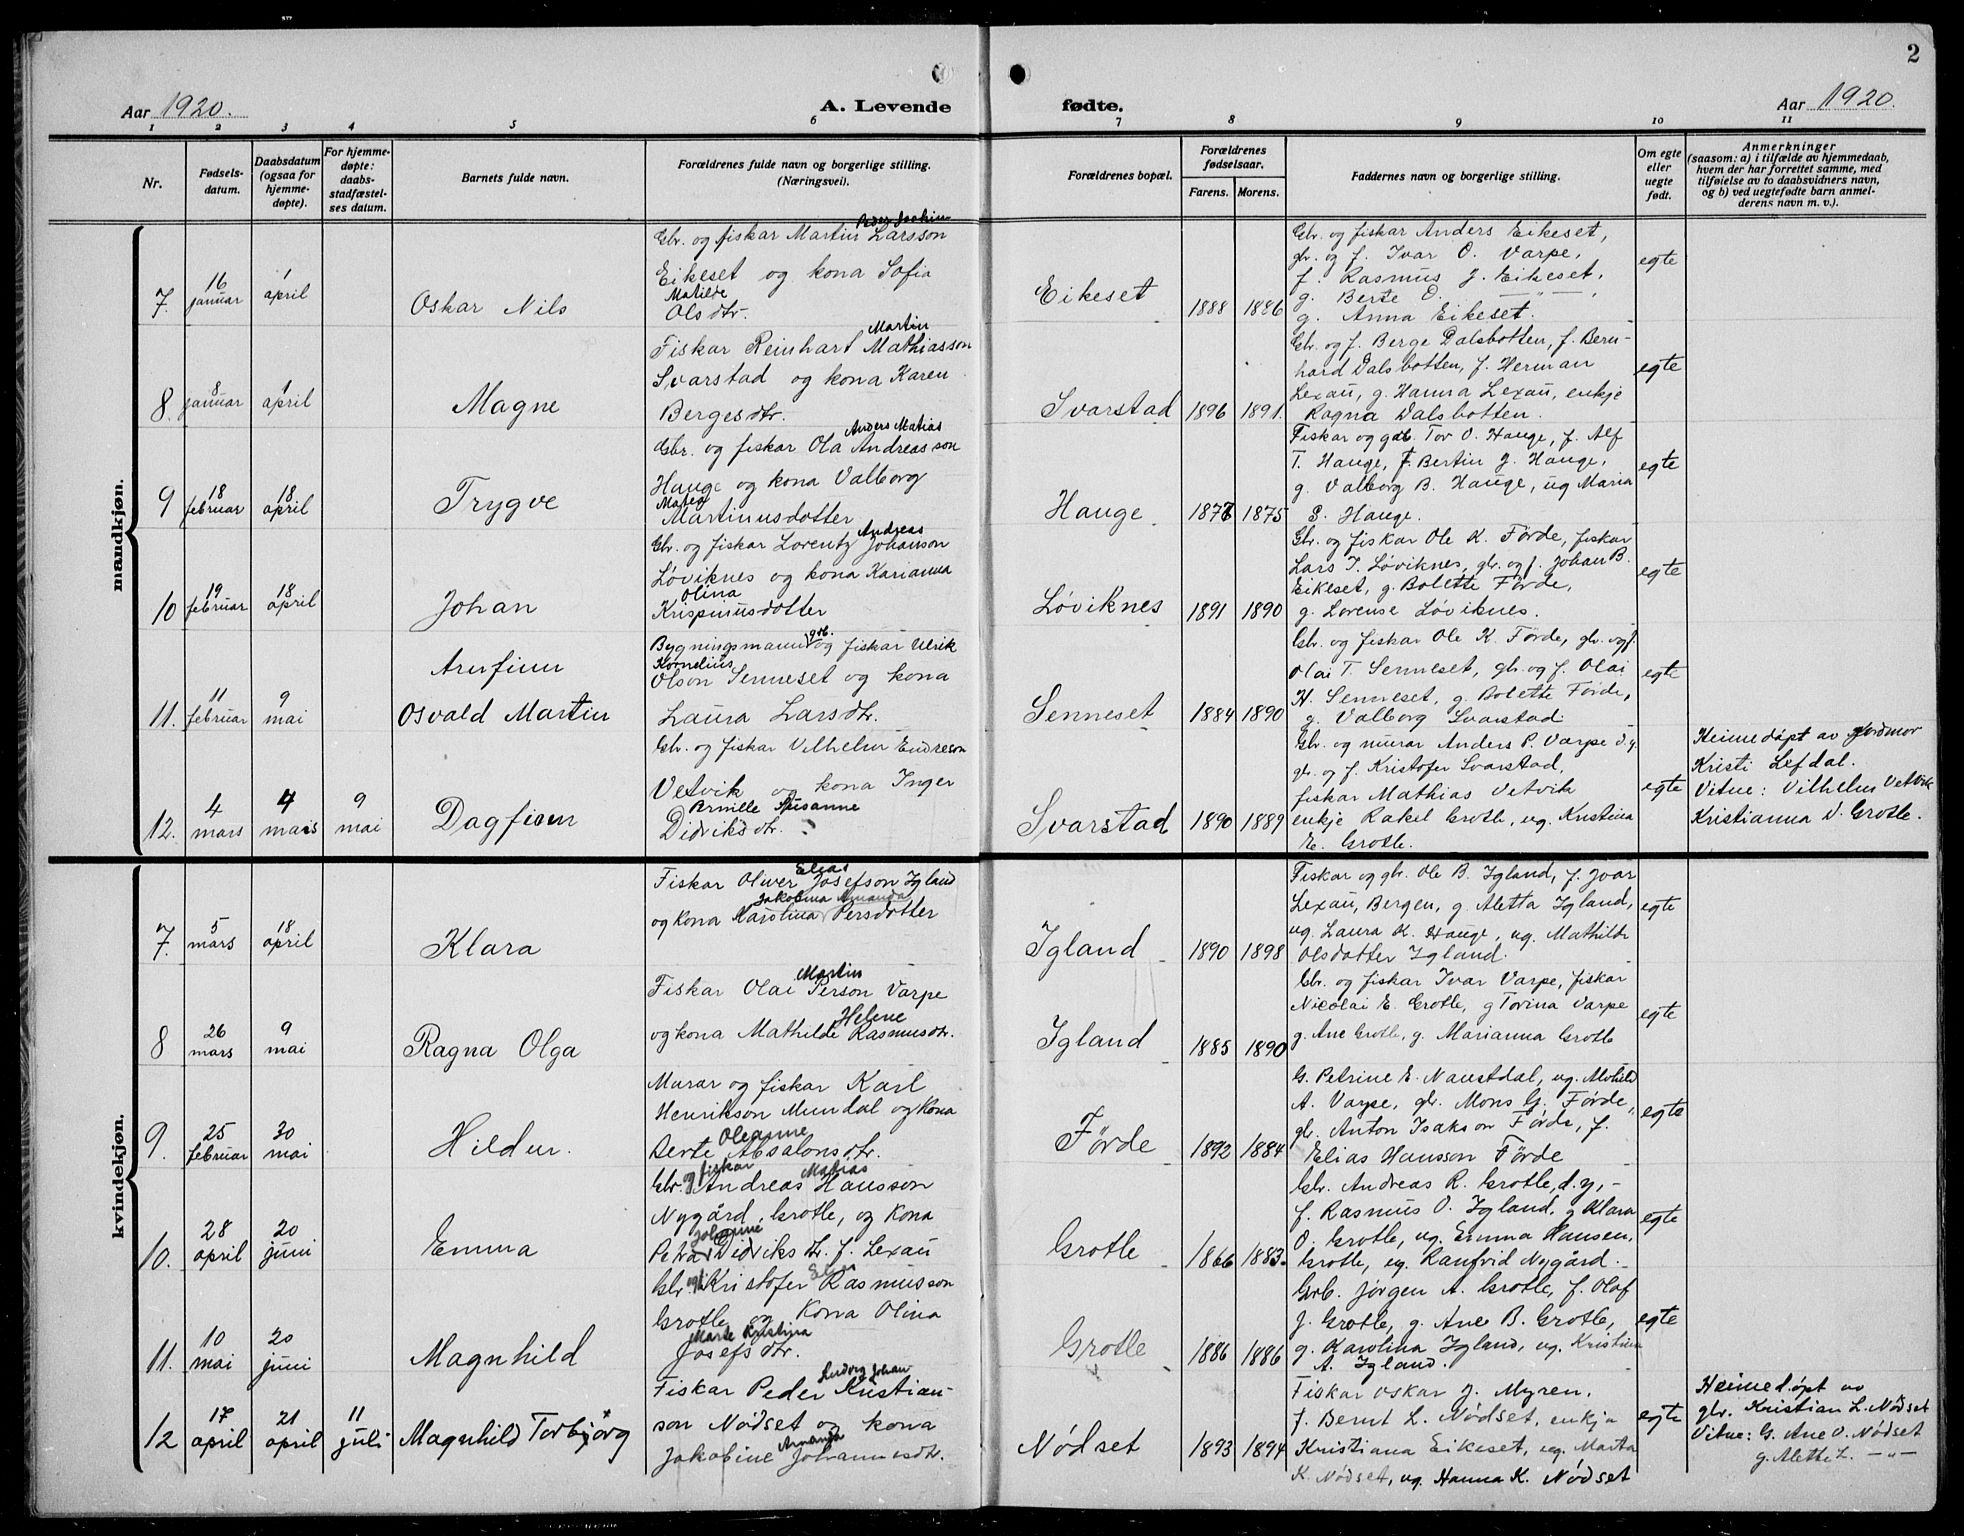 2
Aar 1920.
A. Levende fødte.
Aar 1920.
1 2 3 4 5 6 7 8 9 10 11
Nr.
Fødsels-
datum.
Daabsdatum
(ogsaa for
hjemme-
døpte).
For hjemme-
døpte:
daabs-
stadfæstel-
ses datum.
Barnets fulde navn.
Forældrenes fulde navn og borgerlige stilling.
(Næringsvei).
Forældrenes bopæl.
Forældrenes
fødselsaar.
Farens. Morens.
Faddernes navn og borgerlige stilling.
Om egte
eller
uegte
født.
Anmerkninger
(saasom: a) i tilfælde av hjemmedaab,
hvem der har forrettet samme, med
tilføielse av to daabsvidners navn,
og b) ved uegtefødte barn anmel-
derens navn m. v.).
mandkjøn.
7.
16
januar
1
april
Oskar Nils
Peder Joakim
Gbr. og fiskar Martin Larsson
Eikeset og kona Sofia
Matilde
Olsdtr.
Eikeset
1888 1886
Gbr. og fiskar Anders Eikeset,
gbr. og f. Ivar O. Varpe,
f. Rasmus J. Eikeset,
g. Berte O. — " —
g. Anna Eikeset.
egte
8.
8
januar
1
april
Magne
Martin
Fiskar Reinhart Mathiasson
Svarstad og kona Karen
Bergesdtr.
Svarstad
1896 1891.
Gbr. og f. Berge Dalsbotten, f. Bern-
hard Dalsbotten, f. Herman
Lexau, g. Hanna Lexau, enkje
Ragna Dalsbotten.
egte
9
18
februar
18
april
Trygve
Anders Matias
Gbr. og fiskar Ola Andreasson
Hauge og kona Valborg
Martinusdotter
Hauge
1877 1875
Fiskar og gdb. Tor O. Hauge, f. Alf
T. Hauge, f. Bertin J. Hauge,
g. Valborg B. Hauge, ug Maria
S. Hauge.
egte
10
19
februar
18
april
Johan
Andreas
Gbr. og fiskar Lorentz Johanson
Løviknes og kona Karianna
Olina
Krispinusdotter
Løviknes
1891 1890
Gbr. og fiskar Ole K. Förde, fiskar
Lars T. Løviknes, gbr. og f. Johan B.
Eikeset, g. Bolette Förde,
g. Lorense Løviknes.
egte
11.
11
februar
9
mai
Arnfinn
Osvald Martin
Bygningsmann grb. og fiskar Ulrik
Kornelius
Olson Senneset og kona
Laura Larsdtr.
Senneset
1884 1890
Gbr. og fiskar Ole K. Förde, gbr. og f.
Olai T. Senneset, gbr. og f. Olai
H. Senneset, g. Bolette Förde,
g. Valborg Svarstad
egte
12.
4
mars
4
mars
9
mai
Dagfinn
Gbr. og fiskar Vilhelm Endreson
Vetvik og kona Inger
Brnille Susanne
Didriksdtr.
Svarstad
1890 1889
Gbr. og murar Anders P. Varpe d.y.
gbr. og f. Kristofer Svarstad,
fiskar Mathias Vetvik
enkje Rakel Grotle, ug. Kristina
E. Grotle.
egte
Heimedøpt av jordmor
Kristi Lefdal.
Vitne: Vilhelm Vetvik
Kristianna D. Grotle.
kvindekjøn.
7.
5
mars
18
april
Klara
Elias
Fiskar Oliver Josefson Igland
Jakobina Amanda
og kona Karolina Persdotter
Igland
1890 1898
Fiskar og gbr. Ole B. Igland, f. Ivar
Lexau, Bergen, g. Aletta Igland,
ug. Laura K. Hauge, ug. Mathilde
Olsdotter Igland.
egte
8
26
mars
9
mai
Ragna Olga
Martin
Fiskar Olai Person Varpe
Helene
og kona Mathilde Rasmusdtr.
Igland
1885 1890
Gbr. og fiskar Ivar Varpe, fiskar
Nicolai E. Grotle, g Torina Varpe
g. Ane Grotle, g. Marianna Grotle
egte
9.
25
februar
30
mai
Hildur.
Murar og fiskar Karl
Henrikson Mundal og kona
Oleanne
Berte Absalonsdtr.
Förde
1892 1884
G. Petrine E. Naustdal, ug. Alvhild
A. Varpe, gbr. Mons G. Förde,
gbr. Anton Isakson Förde, f.
Elias Hansson Förde
egte
10.
28
april
20
juni
Emma
og fiskar Matias
Gbr. Andreas Hansson
Nygård, Grotle, og kona
Johanne
Petra Didriksdtr. f. Lexau
Grotle
1866 1883.
Gbr. Andreas R. Grotle, d.y,-
f. Rasmus O. Igland, g Klara
O. Grotle, ug. Emma Hansen,
Grotle, ug. Ranfrid Nygård.
egte
11.
10
mai
20
juni
Magnhild
Elias
Gbr. og f. Kristofer Rasmusson
Grotle og kona Olina
Marte Kristina
Josefsdtr.
Grotle
1886 1886
Grb. Jørgen A. Grotle, f. Olaf
J. Grotle, g. Ane B. Grotle,
g. Karolina Igland, ug. Kristina
A. Igland.
egte
12
17
april
21
april
11
juli
Magnhild Torbjörg
Ludvig Johan
Fiskar Peder Kristian-
son Nødset og kona
Amanda
Jakobine Johannesdtr.
Nødset
1893 1894
Fiskar Oskar J. Myren,
f. Bernt L. Nødset, enkja
Kristiana Eikeset, ug. Marta
K. Nødset, ug. Hanna K. Nødset
egte
Heimedøpt av
gbr. Kristian L. Nødset
Vitne: G. Ane O. Nødset
g. Alette L. — " —